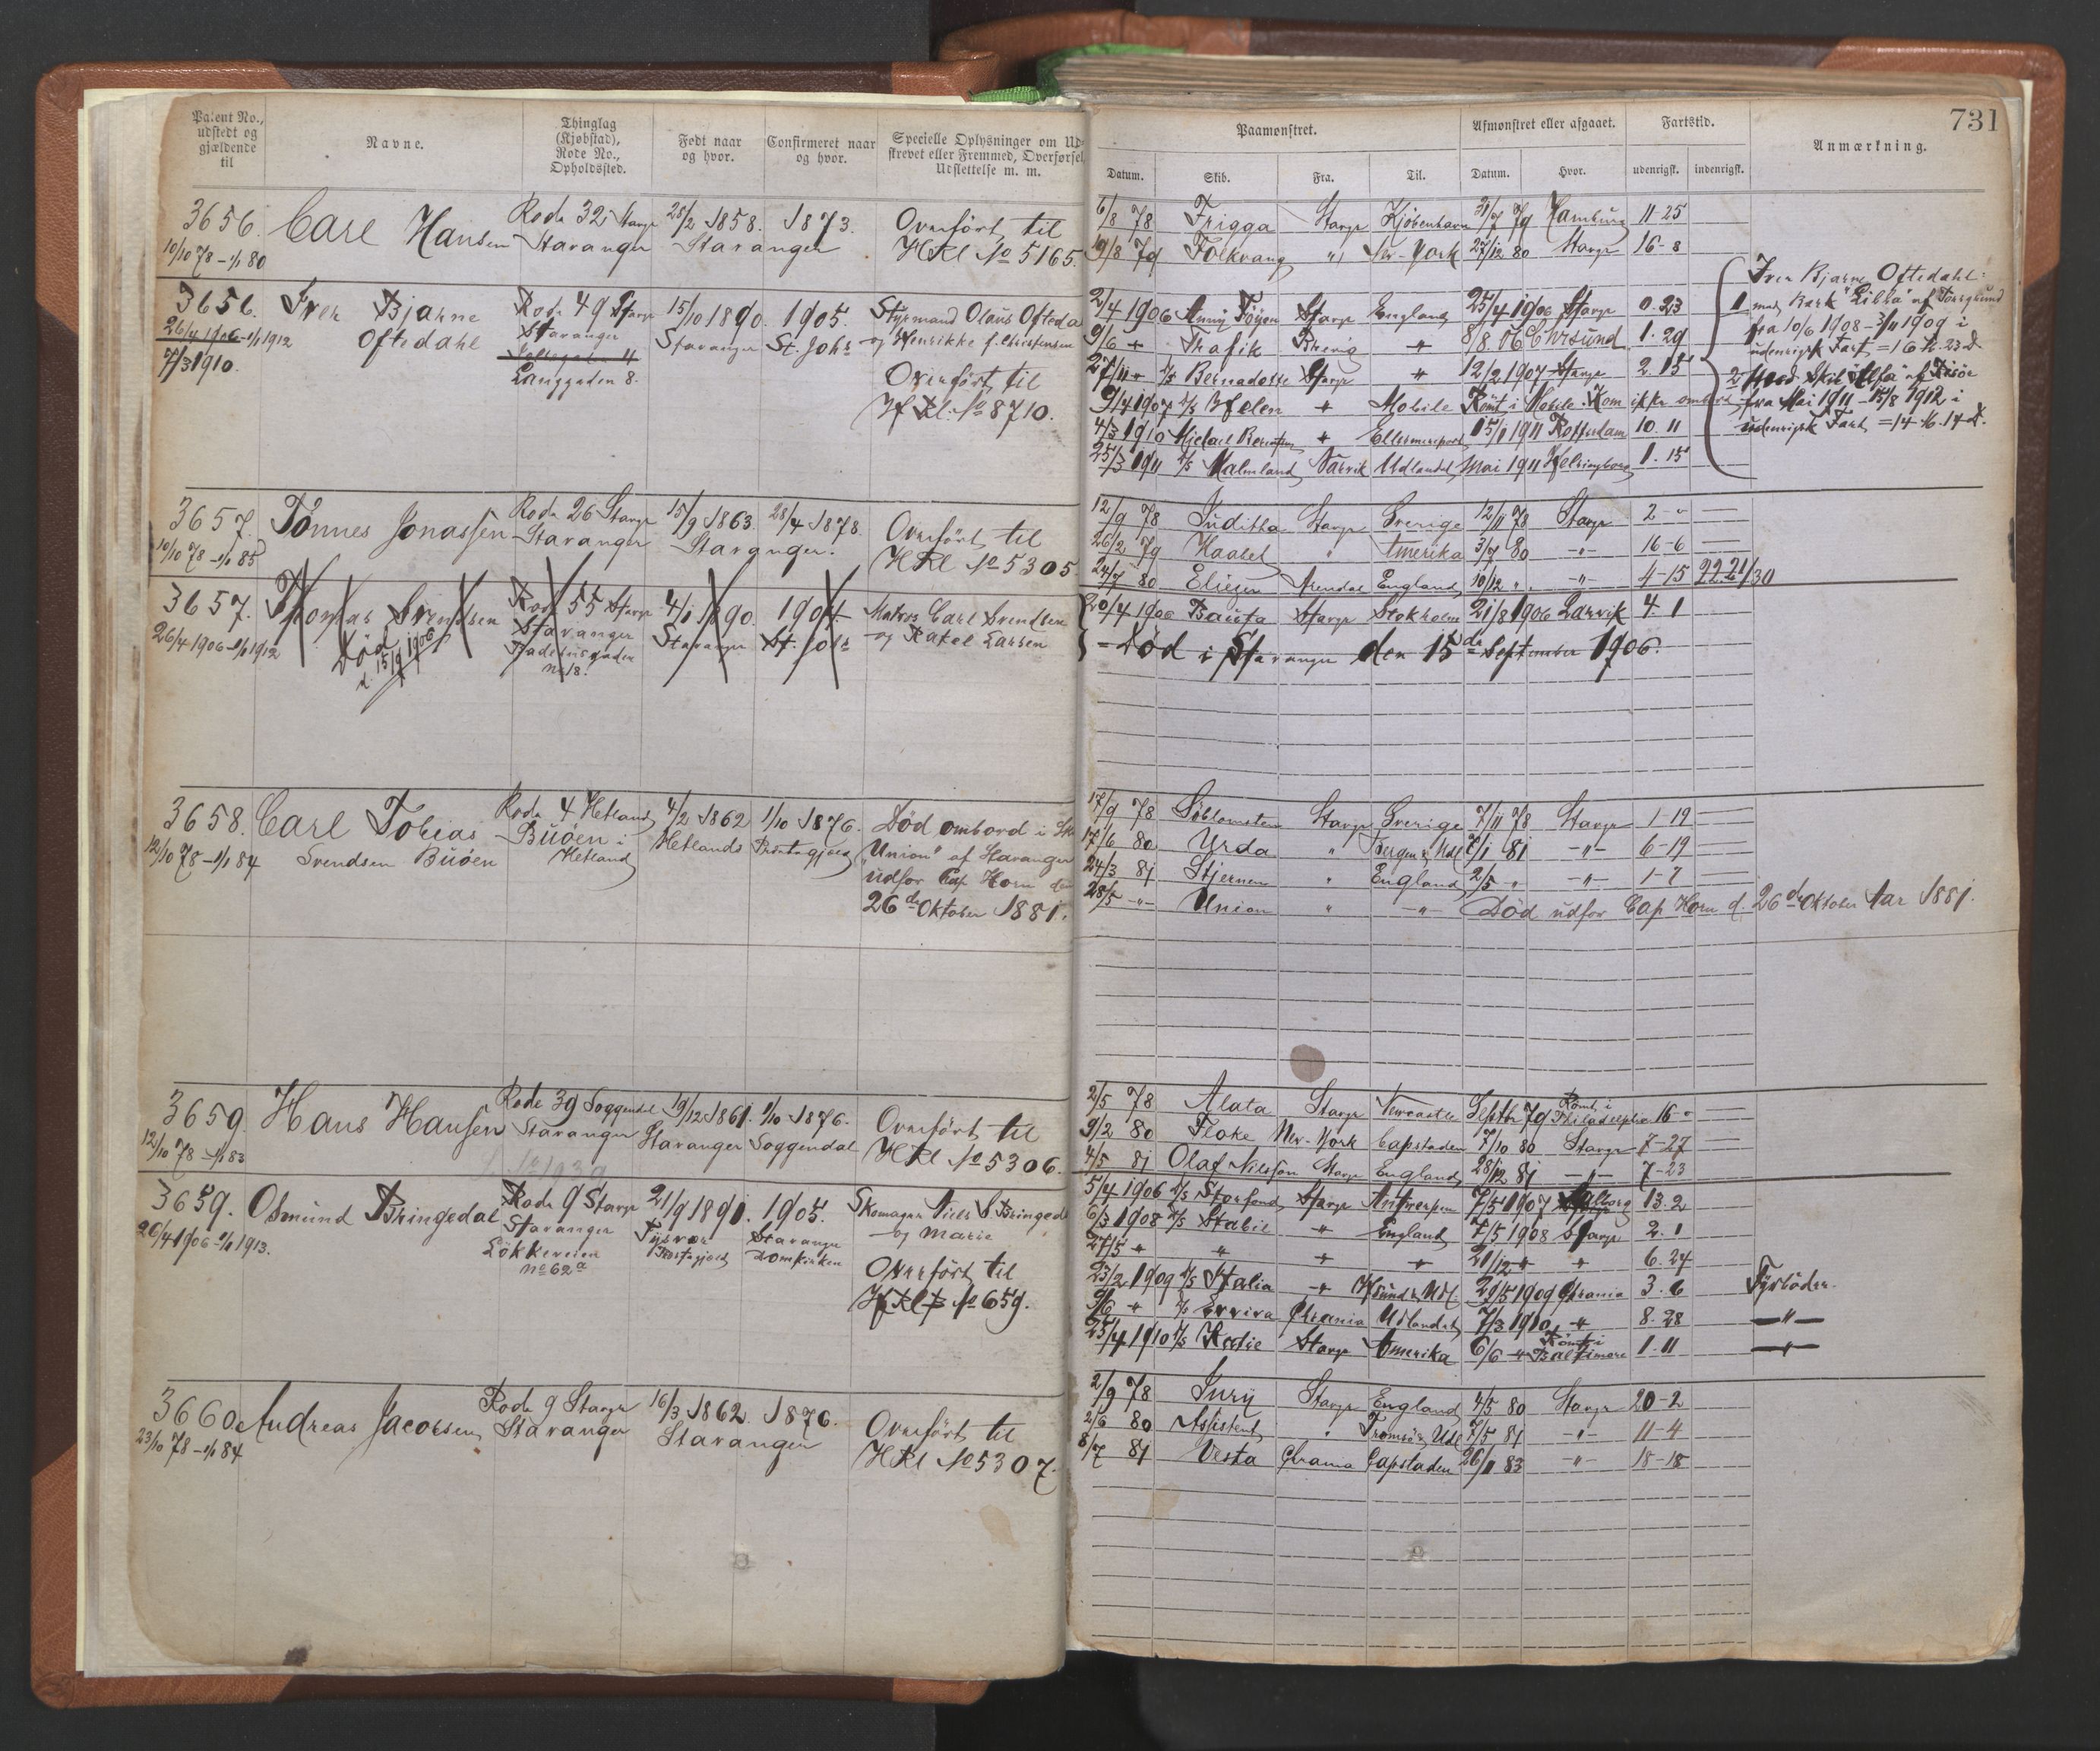 731
Patent No., udstedt og gjældende til
Navne.
Thinglag (Kjøbstad), Rode No., Opholdssted.
Født naar og hvor.
Confirmeret naar og hvor.
Specielle Oplysninger om Ud-
skrevet eller Fremmed, Overførsel,
Udslettelse m. m.
Paamønstret.
Afmønstret eller afgaaet.
Fartstid.
Anmærkning.
Datum. Skib. Fra. Til. Datum. Hvor. udenrigsk. indenrigsk.
3656. Carl Hansen Rode 32 Stavgr 28/2 1858. 1873. Overført til
10/10 78 - 1/1 80 Stavanger Stavanger HRl No 5165.
6/8 78 Frigga Stavgr Kjøbenhavn 31/7 79 Hamburg 11-25
19/8 79 Folkvang " New-York 27/12 80 Stavgr 16-8
3656. Iver Bjarne Rode 49 Stavgr 15/10 1890. 1905. Styrmand Olaus Ofteda
26/4 1906 - 1/1 1912 Oftedahl Stavanger Stavanger St. Johs og Henrikke f. Christensen
7/3 1910. 4
Langgaden 8.
Overført til
HfRl. No 8710.
2/4 1906 Anny Foyen Stavgr England 25/4 1906 Stavgr 0.23
9/6 " Trafik Brevig " 8/8 06 Chrsund 1.29
27/11 " D/S Bernadotte Stavgr " 12/2 1907 Stavgr 2.15
9/4 1907 Helen " Mobile Rømt i Mobile. Kom ikke ombord
4/3 1910 Michael " 15/1 1911 Rotterdam 10.11
25/3 1911 D/S Malmland Narvik Udlandet Mai 1911 Helsingborg 1.15
Iver Bjarne Oftedahl:
1 med Bark "Libba" af Porsgrund
fra 10/6 1908 - 3/11 1909 i
udenrigsk Fart = 16 M. 23 D.
2 Med Skib "Alfa" af Risør
fra Mai 1911 - 15/8 1912 i
udenrigsk Fart = 14 M. 14 D.
3657. Tønnes Jonassen Rode 26 Stavgr 15/9 1863. 28/4 1878. Overført til
10/10 78 - 1/1 85 Stavanger Stavanger. HRl No 5305
12/9 78 Juditha Stavgr Sverige 12/11 78 Stavgr 2-"
26/2 79 Haabet " Amerika 3/7 80 -"- 16-6
24/7 80 Eliezer Arendal England 10/12 " -"- 4-15 22 21/30
3657. Thomas Svendsen Rode 55 Stavgr 4/1 1890. 1904. Matros Carl Svendsen
26/4 1906 - 1/1 1912 Død Stavanger Stavanger St. Johs og Rakel Larsen
d. 15/9 1906
No 18.
20/4 1906 Bauta Stavgr Stokholm 21/8 1906 Larvik 4.1
- Død i Stavanger den 15de September 1906.
3658. Carl Tobias Rode 4 Hetland 4/2 1862 1/10 1876. Død ombord i Sk
12/10 78 - 1/1 84 Svendsen Buøen Buøen i Hetlands "Union" af Stavanger
Hetland udfor Cap Horn den
26de Oktober 1881.
17/9 78 Søblomsten Stavgr Sverige 7/11 78 Stavgr 1-19
17/6 80 Urda " Bergen & Udl 81 -"- 6-19
24/3 81 Stjernen " England 2/5 " -"- 1-7
28/5 -"- Union " -"- Død udfor Cap Horn d. 26de Oktober Aar 1881.
3659. Hans Hansen Rode 39 Soggendal 19/12 1861. 1/10 1876. Overført til
12/10 78 - 1/1 83 Stavanger Stavanger Soggendal HRl No 5306.
2/5 78 Alata Stavgr Newcastle Septbr 79 Rømt i Philadelphia 16-"
9/2 80 Floke New-York Capstaden 7/10 80 Stavgr 7-27
4/5 81 Olaf Nilsson Stavgr England 28/12 81 -"- 7-23
3659. Osmund Bringedal Rode 9 Stavgr 21/9 1891. 1905. Skomager Niels S. Bringed
26/4 1906 - 1/1 1913. Stavanger Tysvær Stavanger og Marie
Løkkeveien Domkirken
No 62a
Overført til
HfRl No 659.
5/4 1906 D/S Storfond Stavgr Antwerpen 7/5 1907 Aalborg 13.2
6/3 1908 D/S Stabil " England 7/5 1908 Stavgr 2.1
27/5 " " " " 21/12 " " 6.24
23/2 1909 D/S Italia " 29/5 1909 Chrania 3.6 Fyrbøder.
9/6 " Chrania Udlandet 7/3 1910 " 8.28 -"-
25/4 1910 D/S Stavgr Amerika 6/6 " Rømt i Baltimore 1.11 -"-
3660. Andreas Jacobsen Rode 9 Stavgr 16/3 1862. 1876. Overført til
23/10 78 - 1/1 84 Stavanger Stavanger HRl No 5307.
2/9 78 Jury Stavgr England 4/5 80 Stavgr 20-2
2/6 80 Assistent " Tromsø & Udl 7/5 81 -"- 11-4
8/7 81 Vesta Chrania Capstaden 26/1 83 -"- 18-18